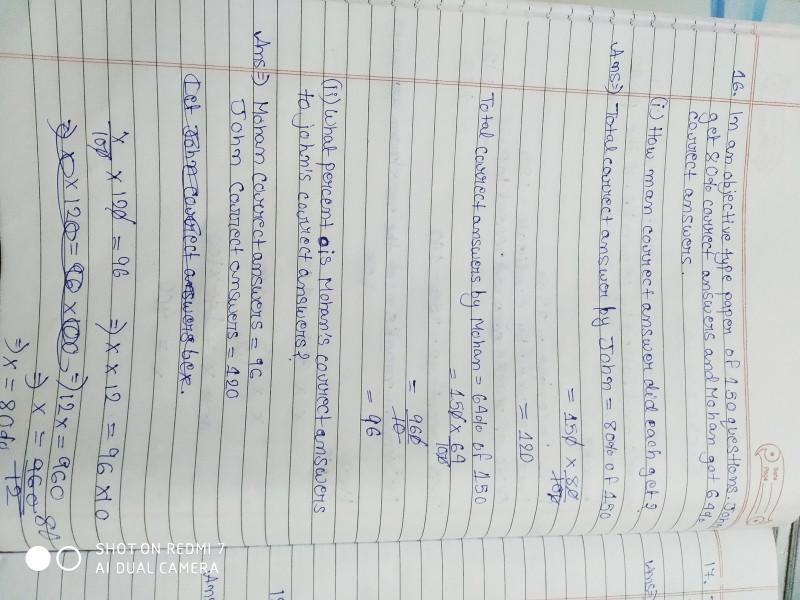 16. In an objective type paper of 150 questions. John
get 80% correct answers and Mohan got 64%
correct answers.
(i) How man correct answer did each get?
Ans⇒) Total correct answer by John = 80% of 150
= 150 × 80/100
= 120
Total correct answers by Mohan = 64% of 150
= 150 × 64/100
= 960/10
= 96
(ii) What percent is Mohan's correct answers
to john's correct answers?
Ans⇒) Mohan correct answers = 96
John correct answers = 120
Let John correct answers be x.
x/100 × 120 = 96 ⇒ x × 12 = 96 × 10
⇒ x × 120 = 96 × 100 ⇒ 12x = 960
⇒ x = 960 80
12
⇒ x = 80%
17.
Ans⇒
Ans
Date
Page
SHOT ON REDMI 7
AI DUAL CAMERA